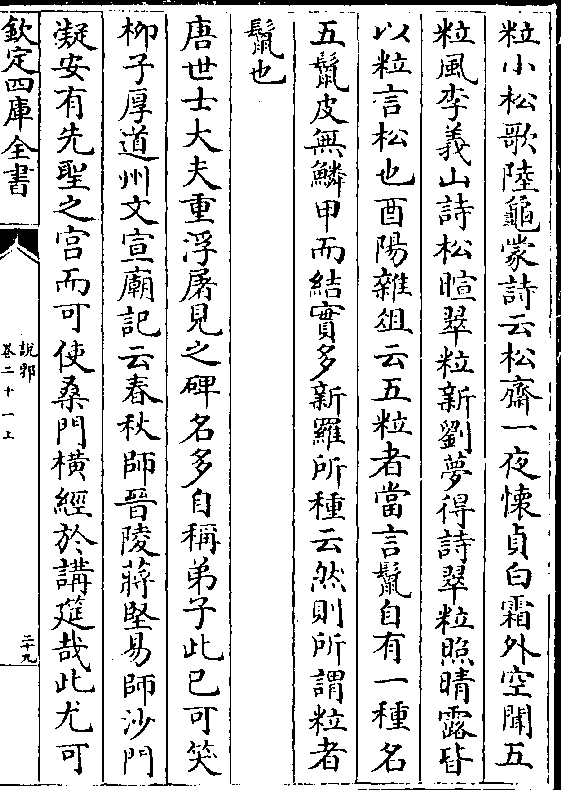 粒小松歌陸龜蒙詩云松齋一夜懐貞白霜外空聞五
粒風李義山詩松暄翠粒新劉夢得詩翠粒照晴露皆
以粒言松也酉陽雜俎云五粒者當言鬛自有一種名
五鬛皮無鱗甲而結實多新羅所種云然則所謂粒者
鬛也
唐世士大夫重浮屠見之碑名多自稱弟子此已可笑
柳子厚道州文宣廟記云春秋師晉陵蔣堅易師沙門
凝安有先聖之宫而可使桑門横經於講筵哉此尤可
欽定四庫全書
說郛
卷二十一上
二十九